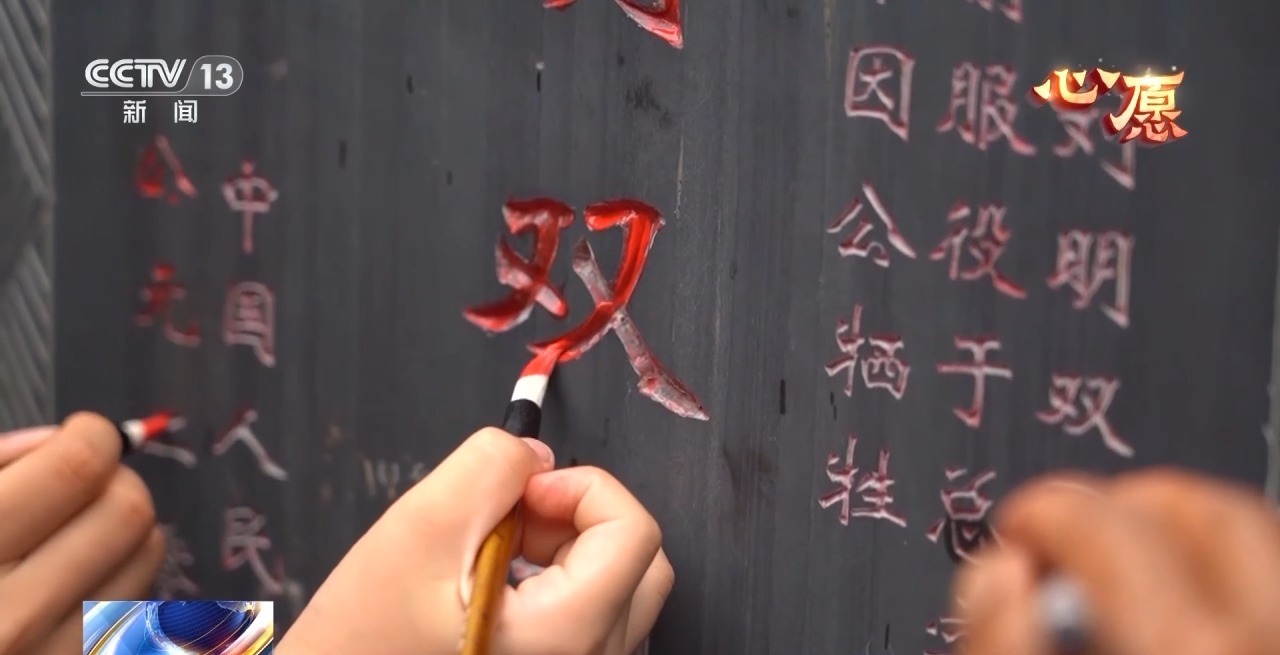 CCTV 13
新闻
心愿
刘明双
服役于总
因公牺牲
双
中国人民
公元